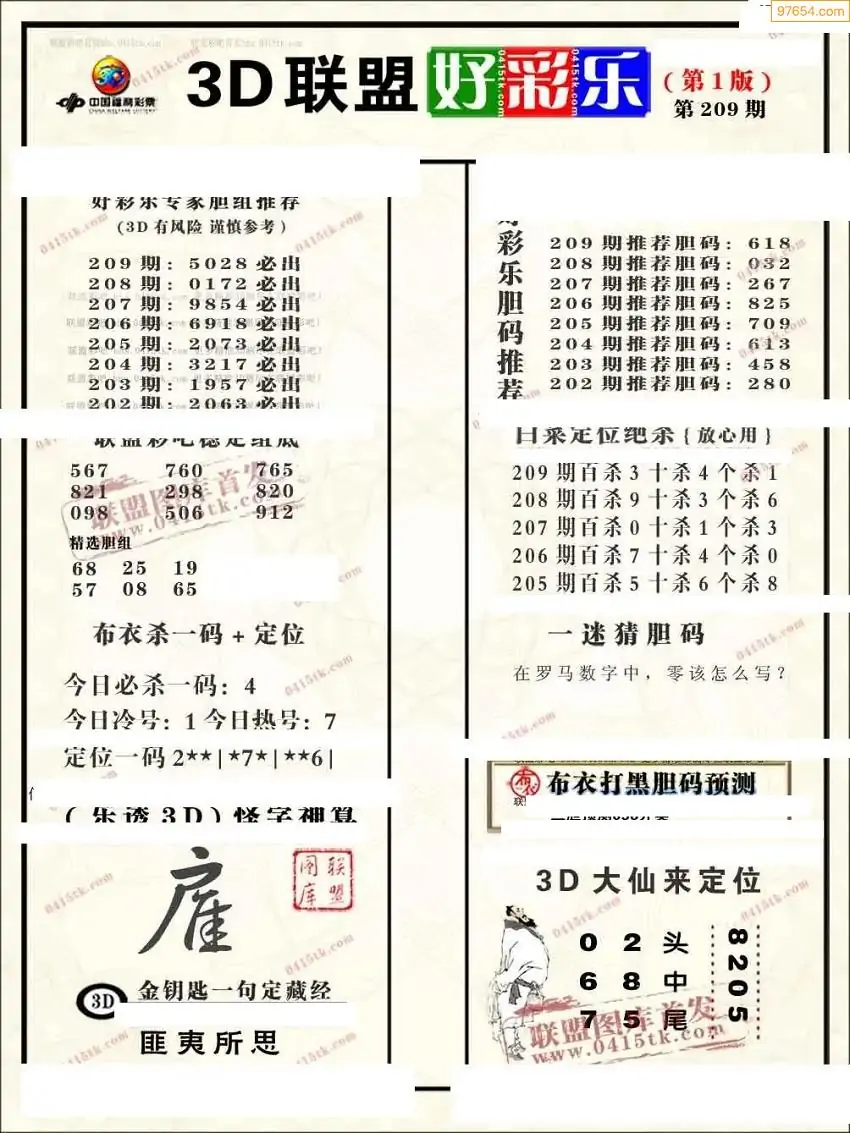 97654.com
3D联盟好彩乐
(第1版)
第209期
中国福利彩票
CHINA WELFARE LOTTERY
好彩乐专家胆组推荐
(3D有风险 谨慎参考)
209期:5028必出
208期:0172必出
207期:9854必出
206期:6918必出
205期:2073必出
204期:3217必出
203期:1957必出
202期:2063必出
联盟彩吧稳定组底
567 760 765
821 298 820
098 506 912
联盟图库首发
www.0415tk.com
精选胆组
68 25 19
57 08 65
布衣杀一码+定位
今日必杀一码:4
今日冷号:1 今日热号:7
定位一码2**|*7*|**6|
(乐透3D)怪字神算
雇
联盟图库
3D
金钥匙一句定藏经
匪夷所思
好彩乐胆码推荐
209期推荐胆码:618
208期推荐胆码:032
207期推荐胆码:267
206期推荐胆码:825
205期推荐胆码:709
204期推荐胆码:613
203期推荐胆码:458
202期推荐胆码:280
白菜定位绝杀{放心用}
209期百杀3十杀4个杀1
208期百杀9十杀3个杀6
207期百杀0十杀1个杀3
206期百杀7十杀4个杀0
205期百杀5十杀6个杀8
一迷猜胆码
在罗马数字中，零该怎么写?
布衣
布衣打黑胆码预测
3D大仙来定位
0 2 头
6 8 中
7 5 尾
8205
联盟图库首发
www.0415tk.com